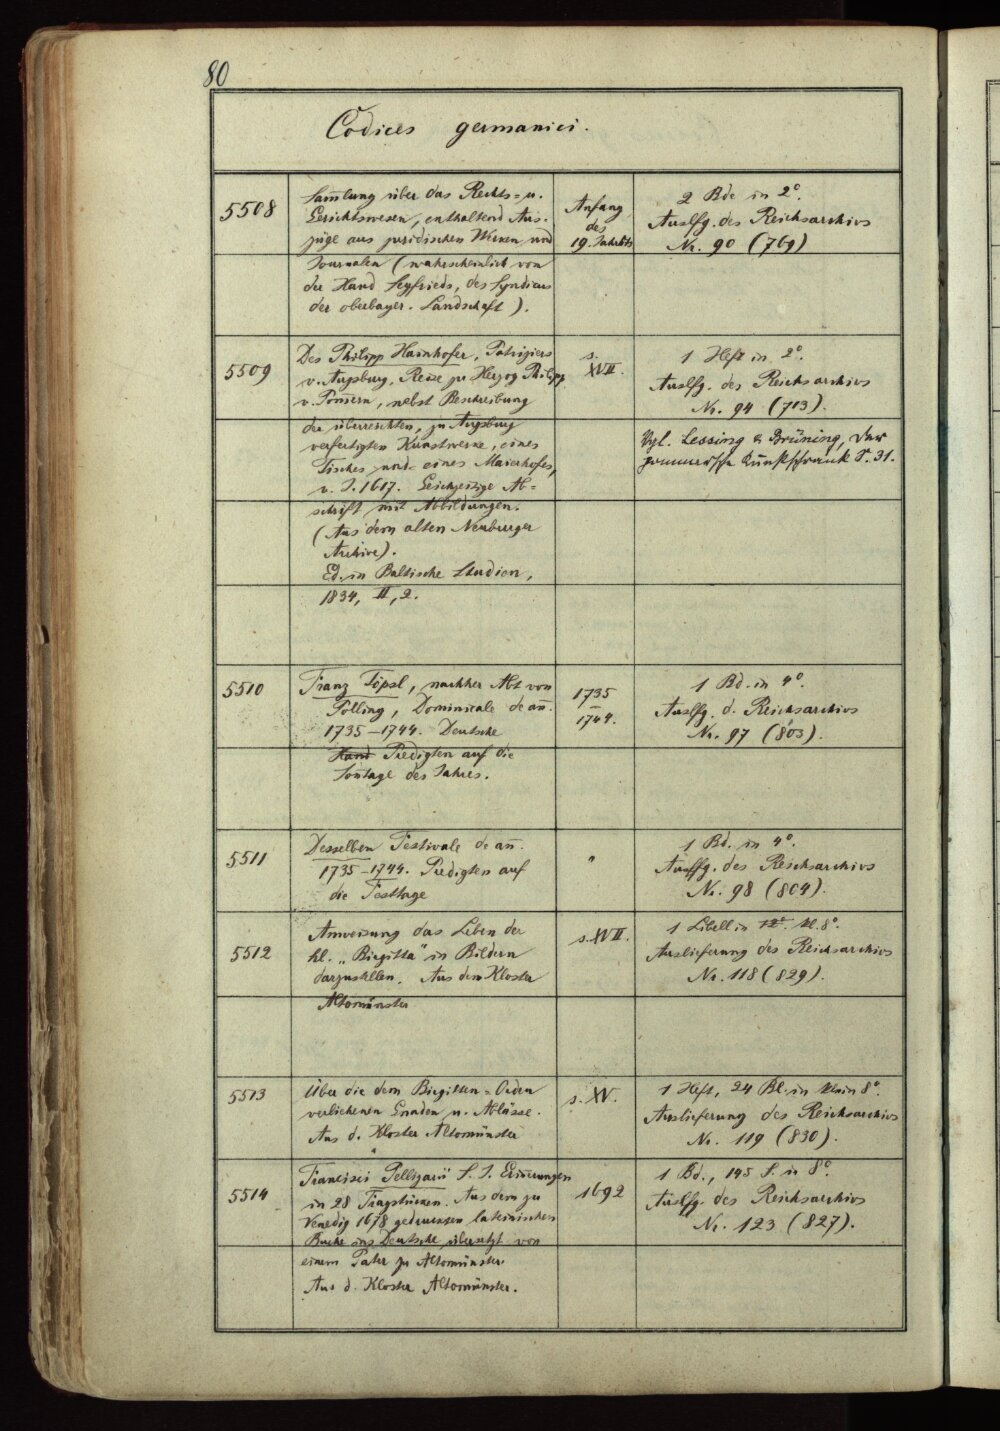 80
Codices germanici.
5508
Sam̅lung über das Rechts- u.
Gerichtswesen, enthaltend Aus-
züge aus juridischen Werken und
Journalen (wahrscheinlich von
der Hand Seyfrieds, des Syndicus
der oberbayer. Landschaft).
Anfang
des
19. Jahrhts
2 Bde in 2°.
Auslfg. des Reichsarchivs
Nr. 90 (769)
5509
Des Philipp Hainhofer, Patriziers
v. Augsburg, Reise zu Herzog Philipp
v. Pom̅ern, nebst Beschreibung
der überreichten, zu Augsburg
verfertigten Kunstwerke, eines
Tisches und eines Maierhofes,
v. J. 1617. Gleichzeitige Ab-
schrift mit Abbildungen.
(Aus dem alten Neuburger
Archive).
Ed. in Baltische Studien,
1834, II, 2.
s.
XVII.
1 Heft in 2°.
Auslfg. des Reichsarchivs
Nr. 94 (713).
Vgl. Lessing & Brüning, Der
pommersche Kunstschrank S. 31.
5510
Franz Töpsl, nachher Abt von
Polling, Dominicale de an̅.
1735–1744. Deutsche
Hand Predigten auf die
Son̅tage des Jahres.
1735
–
1744.
1 Bd. in 4°.
Auslfg. d. Reichsarchivs
Nr. 97 (803).
5511
Desselben Festivale de an̅.
1735–1744. Predigten auf
die Festtage
"
1 Bd. in 4°.
Auslfg. des Reichsarchivs
Nr. 98 (804).
5512
Anweisung das Leben der
hl. „Birgitta" in Bildern
darzustellen. Aus dem Kloster
Altomünster
s. XVII.
1 Libell in 12° kl. 8°.
Auslieferung des Reichsarchivs
Nr. 118 (829).
5513
Über die dem Birgitten-Orden
verliehenen Gnaden u. Ablässe.
Aus d. Kloster Altomünster
s. XV.
1 Heft, 24 Bl. in klein 8°.
Auslieferung des Reichsarchivs
Nr. 119 (830).
5514
Francisci Pelligarii S. J. Erin̅erungen
in 28 Tragstücken. Aus dem zu
Venedig 1678 gedruckten lateinischen
Buche ins Deutsche übersetzt von
einem Pater zu Altomünster.
Aus d. Kloster Altomünster.
1692
1 Bd., 145 S. in 8°
Auslfg. des Reichsarchivs
Nr. 123 (827).